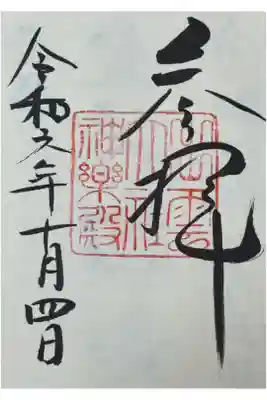 参拝
出雲
大社
神楽殿
令和六年十月四日